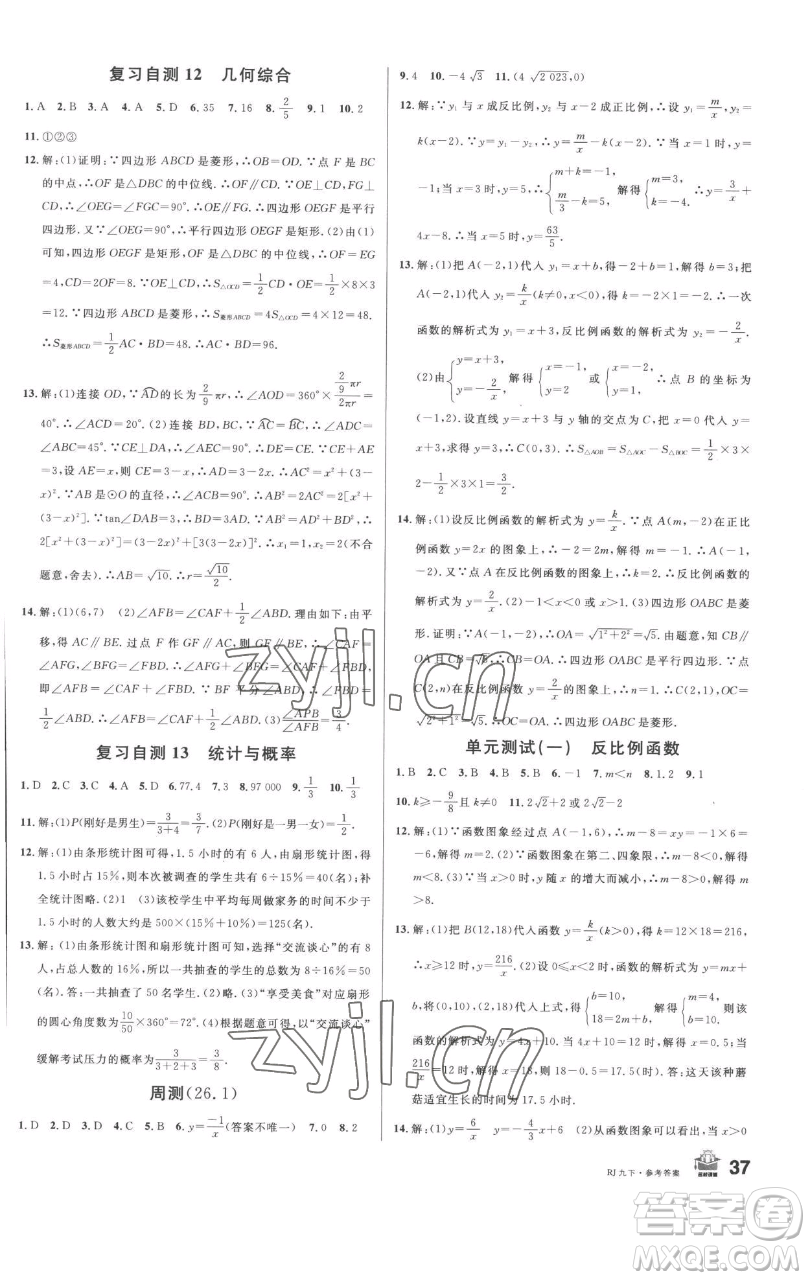 复习自测12 几何综合
1.A 2.B 3.A 4.A 5.D 6.35 7.16 8.2/5 9.1 10.2
11.①②③
12.解:(1)证明:∵四边形ABCD是菱形,∴OB=OD.∵点F是BC
的中点,∴OF是△DBC的中位线.∴OF∥CD.∵OE⊥CD,FG⊥
CD,∴∠OEG=∠FGC=90°.∴OE∥FG.∴四边形OEGF是平行
四边形.又∵∠OEG=90°,∴四边形OEGF是矩形.(2)由(1)
可知,四边形OEGF是矩形,OF是△DBC的中位线.∴OF=EG
=4,CD=2OF=8.∵OE⊥CD,∴S△OCD=1/2CD·OE=1/2×8×3
=12.∵四边形ABCD是菱形,∴S菱形ABCD=4S△OCD=4×12=48.
∴S菱形ABCD=1/2AC·BD=48.∴AC·BD=96.
13.解:(1)连接OD,∵AD的长为2/9πr,∴∠AOD=360°×(2/9πr)/(2πr)=
40°.∴∠ACD=20°.(2)连接BD,BC,∵AC=BC,∴∠ADC=
∠ABC=45°.∵CE⊥DA,∴∠AEC=90°.∴DE=CE.∵DA=
3,设AE=x,则CE=DE=3-x.在Rt△ACE中,AC²=x²+(3-
x)².∵AB是⊙O的直径,∴∠ACB=90°.∴AB²=2AC²=2[x²+
(3-x)²].∵tan∠DAB=3,∴BD=9.∵AB²=AD²+BD²,∴
2[x²+(3-x)²]=
题意,舍去).∴AB=√10.∴r=√10/2.
14.解:(1)(6,7) (2)∠AFB=∠CAF+1/2∠ABD.理由如下:由平
移,得AC∥BE.过点F作GF∥AC,则GF∥BE.∴∠CAF=
∠AFG,∠BFG=∠FBD.∴∠AFB=∠AFG+∠BFG=
∠CAF+∠FBD.∵BF平分∠ABD,∴∠FBD=
1/2∠ABD.∴∠AFB=∠CAF+1/2∠ABD.(3)∠APB/∠AFB=
复习自测13 统计与概率
1.D 2.C 3.C 4.D 5.D 6.77.4 7.3 8.97 000 9.1/3 10.1/3
11.解:(1)P(刚好是男生)=3/(3+4)=3/7.(2)P(刚好是一男一女)=1/2.
12.解:(1)由条形统计图可得,1.5小时的有6人,由扇形统计图可得
1.5小时的占15%,则本次被调查的学生共有6÷15%=40(名);补
全统计图略.(2)1 (3)该校学生中平均每周做家务的时间不少于
1.5小时的人数大约是500×(15%+10%)=125(名).
13.解:(1)由条形统计图和扇形统计图可知,选择“交流谈心”的有8
人,占总人数的16%,所以一共抽查的学生总数为8÷16%=50
(名).答:一共抽查了50名学生.(2)略.(3)“享受美食”对应扇形
的圆心角度数为10/50×360°=72°.(4)根据题意可得,以“交流谈心”
缓解考试压力的概率为3/(3+2+3)=3/8.
周测(26.1)
1.D 2.D 3.D 4.C 5.B 6.y=-1/x(答案不唯一) 7.0 8.2
9.4 10.-4√3 11.(4√2 023,0)
12.解:∵y₁与x成反比例,y₂与x-2成正比例,∴设y₁=m/x,y₂=
k(x-2).∵y=y₁-y₂,∴y=m/x-k(x-2).∵当x=1时,y=
-1;当x=3时,y=5,∴{m+k=-1, m/3-k=5. 解得{m=3, k=-4. ∴y=3/x+
4x-8.∴当x=5时,y=63/5.
13.解:(1)把A(-2,1)代入y₁=x+b,得-2+b=1.∴b=3.把
A(-2,1)代入y₂=k/x(k≠0,x<0),得k=-2×1=-2.∴一次
函数的解析式为y₁=x+3,反比例函数的解析式为y₂=-2/x.
(2)由{y=x+3, y=-2/x, 解得{x=-1, y=2 或{x=-2, y=1. ∴点B的坐标为
(-1,2).设直线y=x+3与y轴的交点为C,把x=0代入y=
x+3,求得y=3.∴C(0,3).∴S△AOB=S△AOC-S△BOC=1/2×3×
2-1/2×3×1=3/2.
14.解:(1)设反比例函数的解析式为y=k/x.∵点A(m,-2)在正比
例函数y=2x的图象上,∴-2=2m,解得m=-1.∴A(-1,
-2).又∵点A在反比例函数y=k/x的图象上,∴k=2.∴反比例函数
的解析式为y=2/x.(2)-1<x<0或x>1.(3)四边形OABC是菱形.
证明如下:∵A(-1,-2),∴OA=√(1²+2²)=√5.由题意,知CB∥
OA且CB=√5,∴CB=OA.∴四边形OABC是平行四边形.∵
C(2,n)在反比例函数y=2/x的图象上,∴n=1.∴C(2,1).∴OC=
√(2²+1²)=√5.∴OC=OA.∴四边形OABC是菱形.
单元测试(一) 反比例函数
1.B 2.C 3.D 4.B 5.B 6.-1 7.m<n 8.1.2 9.1
10.k≥-9/8且k≠0 11.2√2+2或2√2-2
12.解:(1)∵函数图象经过点A(-1,6),∴m-8=xy=-1×6=
-6,解得m=2.(2)∵函数图象在第二、四象限,∴m-8<0,解得
m<8.∴y随x的增大而增大.
13.解:(1)把B(12,18)代入y=k/x(k>0),得k=12×18=216,
∴y=216/x.(2)设0≤x≤2时,函数的解析式为y=mx+
b,将(0,10),(2,18)代入上式,得{b=10, 18=2m+b, 解得{m=4, b=10. 则该
函数的解析式为y=4x+10,当y=12时,12=4x+10,解得x=0.5;当
216/x=12时,解得x=18,则18-0.5=17.5(小时).答:这种蘑
菇适宜生长的时间为17.5小时.
14.解:(1)y=6/x y=-3/4x+6 (2)从函数图象可以看出,当x>0
RJ九下·参考答案 37
zyjl.cn
zyjl.cn
答案圈
MXQE.COM